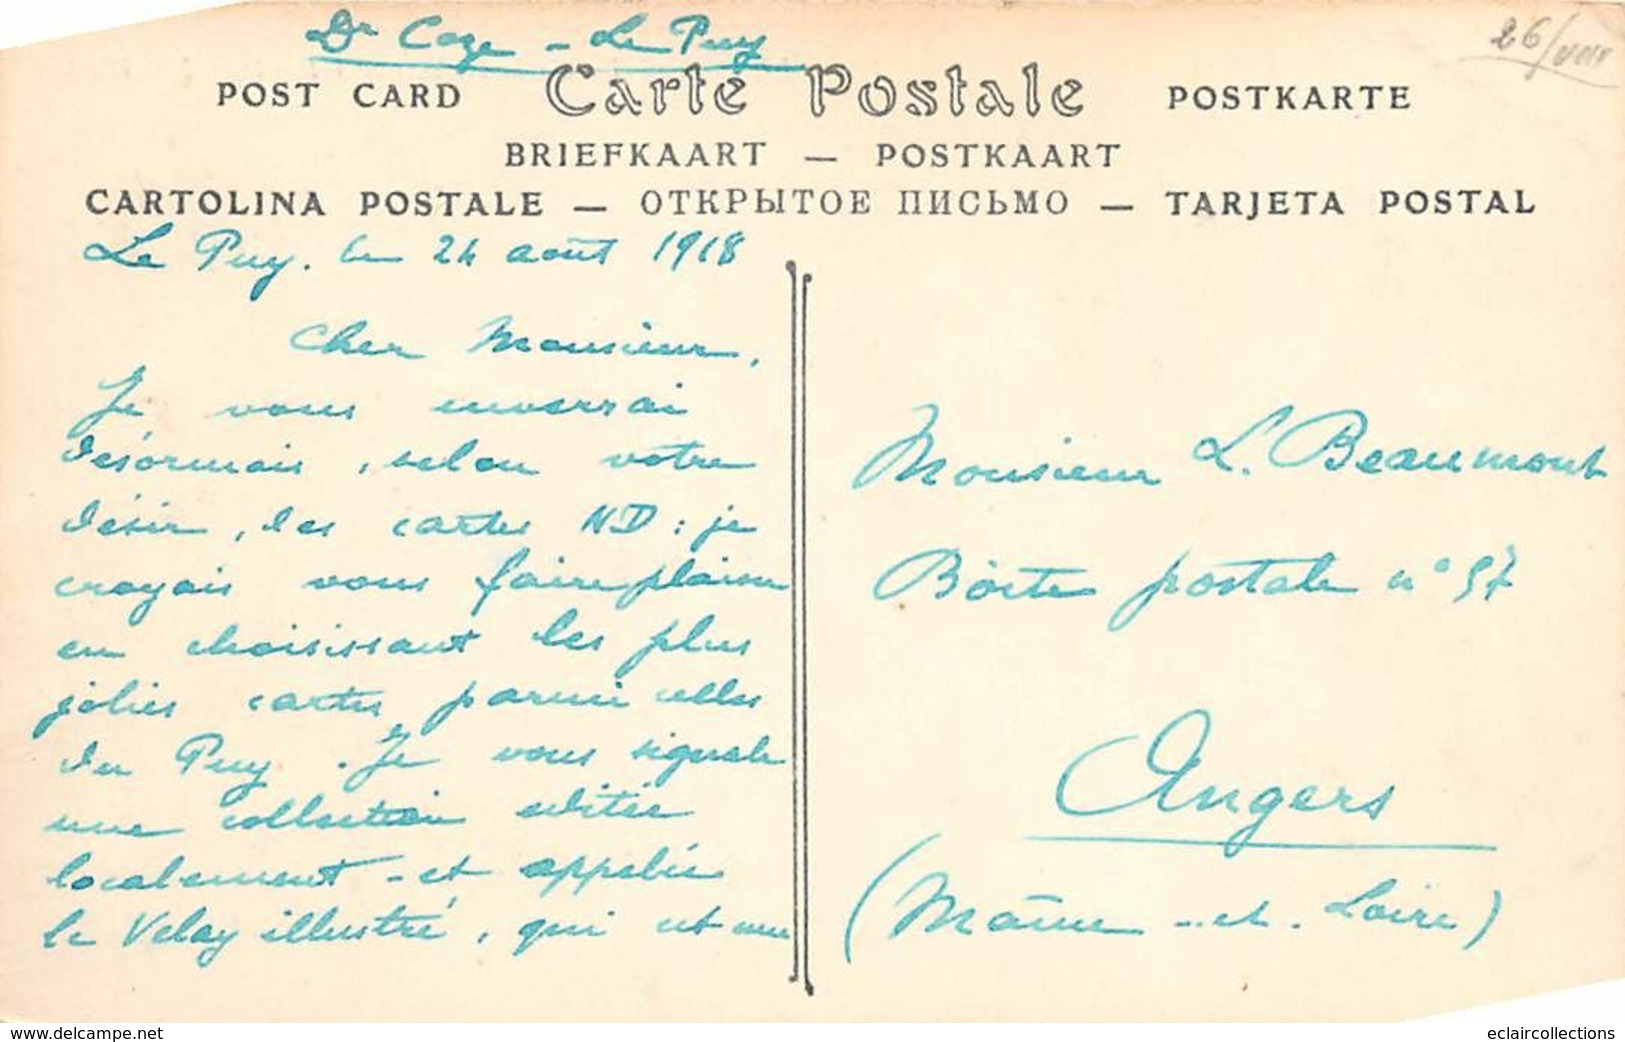 Dr Coze - Le Puy
26/
POST CARD Carte Postale POSTKARTE
BRIEFKAART — POSTKAART
CARTOLINA POSTALE — ОТКРЫТОЕ ПИСЬМО — TARJETA POSTAL
Le Puy. le 24 août 1918
Cher Monsieur,
Je vous enverrai
désormais, selon votre
désir, des cartes ND : je
croyais vous faire plaisir
en choisissant les plus
jolies cartes parmi celles
du Puy. Je vous signale
une collection éditée
localement - et appelée
le Velay illustré, qui est une
Monsieur L. Beaumont
Boîte postale n° 57
Angers
(Maine-et-Loire)
www.delcampe.net
eclaircollections